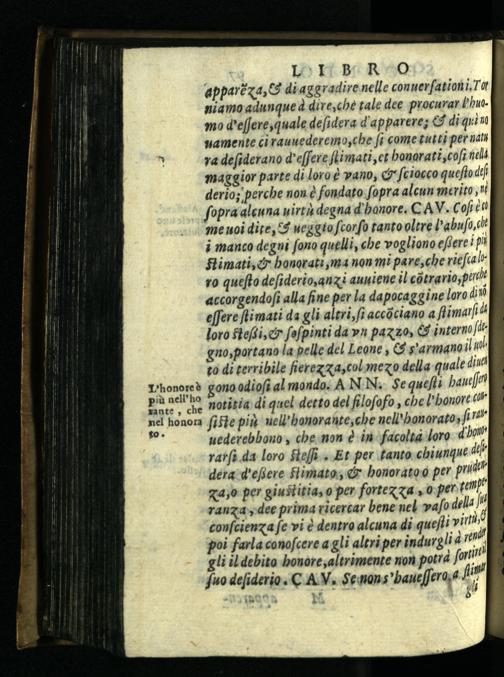 LIBRO
apparẽza, & di aggradire nelle conuersationi. Tor
niamo adunque à dire, che tale dee procurar l'huo-
mo d'essere, quale desidera d'apparere; & di quì no
uamente ci rauuederemo, che si come tutti per natu
ra desiderano d'essere stimati, et honorati, così nella
maggior parte di loro è vano, & sciocco questo desi
derio; perche non è fondato sopra alcun merito, nè
sopra alcuna uirtù degna d'honore. CAV. Così è co
me uoi dite, & ueggio scorso tanto oltre l'abuso, che
i manco degni sono quelli, che vogliono essere i più
stimati, & honorati, ma non mi pare, che riesca lo-
ro questo desiderio, anzi auuiene il cõtrario, perche
accorgendosi alla fine per la dapocaggine loro di nõ
essere stimati da gli altri, si accõciano a stimarsi da
loro stessi, & sospinti da vn pazzo, & interno sde-
gno, portano la pelle del Leone, & s'armano il uol-
to di terribile fierezza, col mezo della quale diuen
gono odiosi al mondo. ANN. Se questi hauessero
notitia di quel detto del filosofo, che l'honore con-
siste più nell'honorante, che nell'honorato, si rau-
uederebbono, che non è in facoltà loro d'hono-
rarsi da loro stessi. Et per tanto chiunque desi-
dera d'essere stimato, & honorato ò per pruden-
za, o per giustitia, o per fortezza, o per tempe-
ranza, dee prima ricercar bene nel vaso della sua
conscienza se vi è dentro alcuna di questi virtù, &
poi farla conoscere a gli altri per indurgli à render
gli il debito honore, altrimente non potrà sortire il
suo desiderio. CAV. Se non s'hauessero a stimar
gli
L'honore è
più nell'ho
rante, che
nel honora
to.